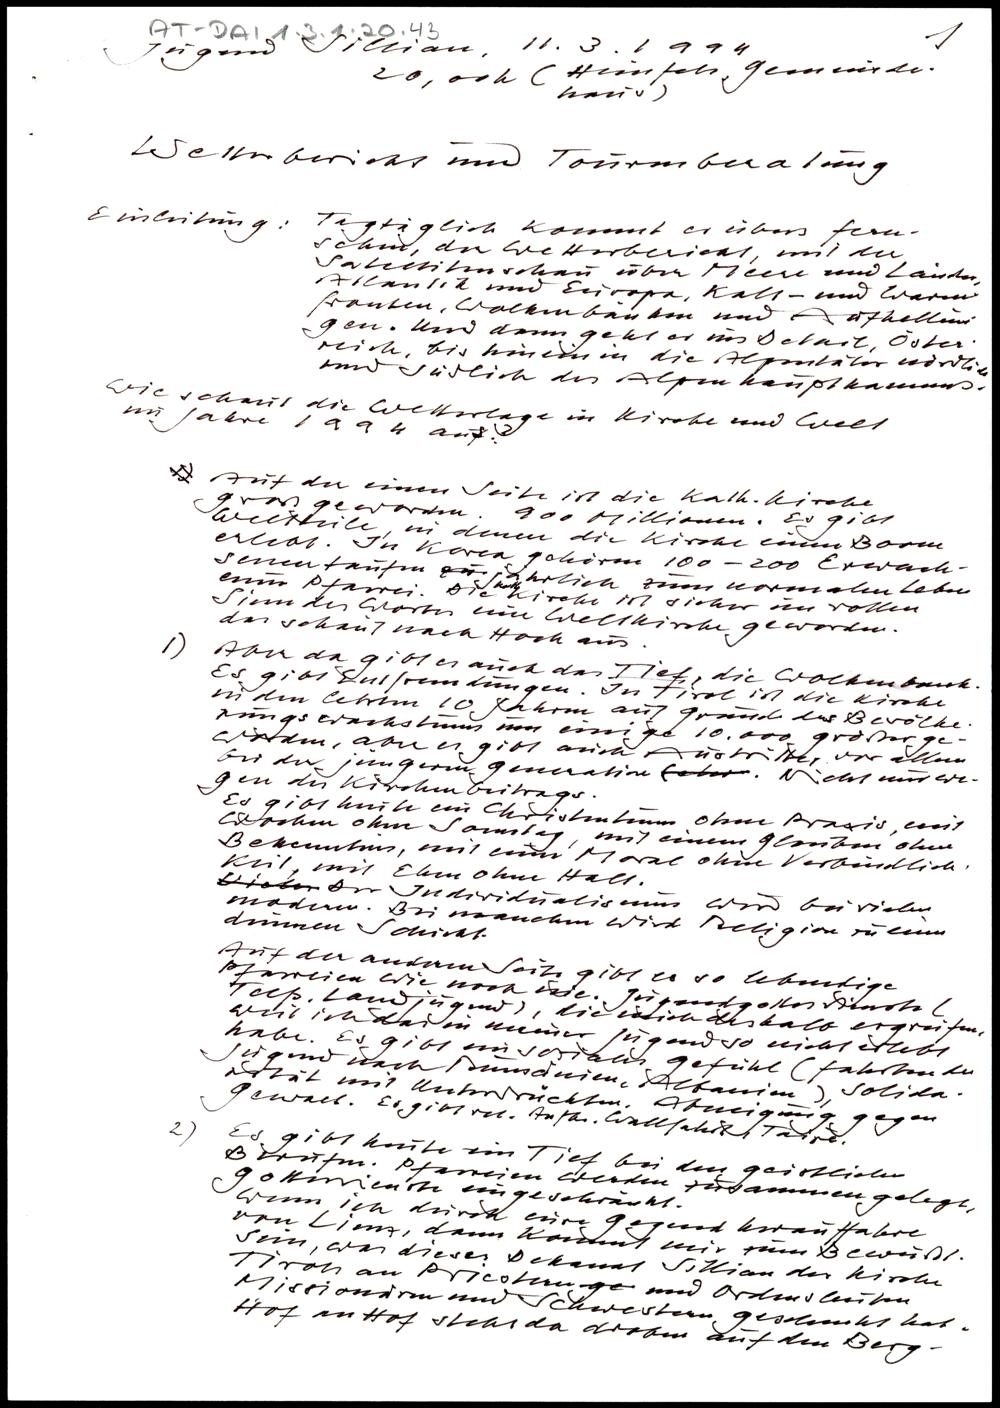 AT-DAI 1.3.1.20.43
1
Jugend Sillian, 11.3.1994
20,00h (Heinfels, Gemeinde-
haus)
Wetterbericht und Tourenberatung
Einleitung: Tagtäglich kommt er übers Fern-
sehen, der Wetterbericht, mit der
Satellitenschau über Meere und Länder,
Atlantik und Europa, Kalt- und Warm-
fronten, Wolkenbänken und Aufhellun
gen. Und dann geht es ins Detail, Öster-
reich, bis hinein in die Alpentäler nördlich
und südlich des Alpenhauptkammes.
Wie schaut die Wetterlage in Kirche und Welt
im Jahre 1994 aus?
Auf der einen Seite ist die Kath. Kirche
groß geworden. 900 Millionen. Es gibt
Weltteile, in denen die Kirche einen Boom
erlebt. In Korea gehören 100-200 Erwach-
senentaufen jährlich zum normalen Leben
einer Pfarrei. Die kath. Kirche ist sicher im vollen
Sinn des Wortes eine Weltkirche geworden.
das schaut nach Hoch aus.
1) Aber da gibt es auch das Tief, die Wolkenbank.
Es gibt Entfremdungen. In Tirol ist die Kirche
in den letzten 10 Jahren auf Grund des Bevölke-
rungswachstums um einige 10.000 größer ge-
worden, aber es gibt auch Austritte, vor allem
bei der jüngeren Generation. Nicht nur we-
gen des Kirchenbeitrags.
Es gibt heute ein Christentum ohne Praxis, mit
Wochen ohne Sonntag, mit einem Glauben ohne
Bekenntnis, mit einer Moral ohne Verbindlich-
keit, mit Ehen ohne Halt.
Der Individualismus wird bei vielen
modern. Bei manchen wird Religion zu einer
dünnen Schicht.
Auf der anderen Seite gibt es so lebendige
Pfarreien wie noch nie. Jugendgottesdienste (
Telfs, Landjugend), die mich deshalb ergreifen,
weil ich das in meiner Jugend so nicht erlebt
habe. Es gibt ein soziales Gefühl (Fahrten der
Jugend nach Rumänien, Albanien), Solida-
rität mit Unterdrückten, Abneigung gegen
Gewalt. Es gibt rel. Aufbr. Wallfahrt, Taizé.
2) Es gibt heute ein Tief bei den geistlichen
Berufen. Pfarreien werden zusammengelegt,
Gottesdienste eingeschränkt.
Wenn ich durch eure Gegend herauffahre
von Lienz, dann kommt mir zum Bewußt-
sein, was dieses Dekanat Sillian der Kirche
Tirols an Priestern und Ordensleuten
Missionären und Schwestern geschenkt hat.
Hof an Hof steht da droben auf den Berg-